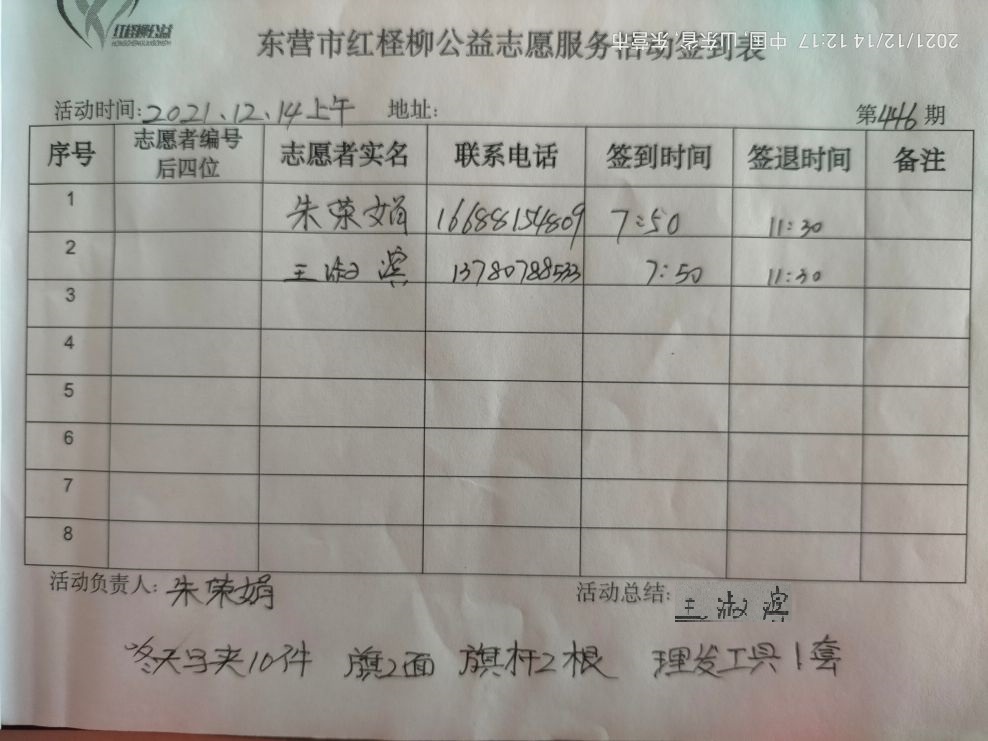 红柽柳公益
HONGCHENGLIUGONGYI
东营市红柽柳公益志愿服务活动签到表
2021/12/14 12:17 中国, 山东省, 东营市
活动时间:2021.12.14上午 地址: 第446期
序号 志愿者编号后四位 志愿者实名 联系电话 签到时间 签退时间 备注
1 朱荣娟 16688154809 7:50 11:30
2 王淑滨 13780788533 7:50 11:30
3
4
5
6
7
8
活动负责人: 朱荣娟 活动总结: 王淑滨
冬天马夹10件 旗2面 旗杆2根 理发工具1套